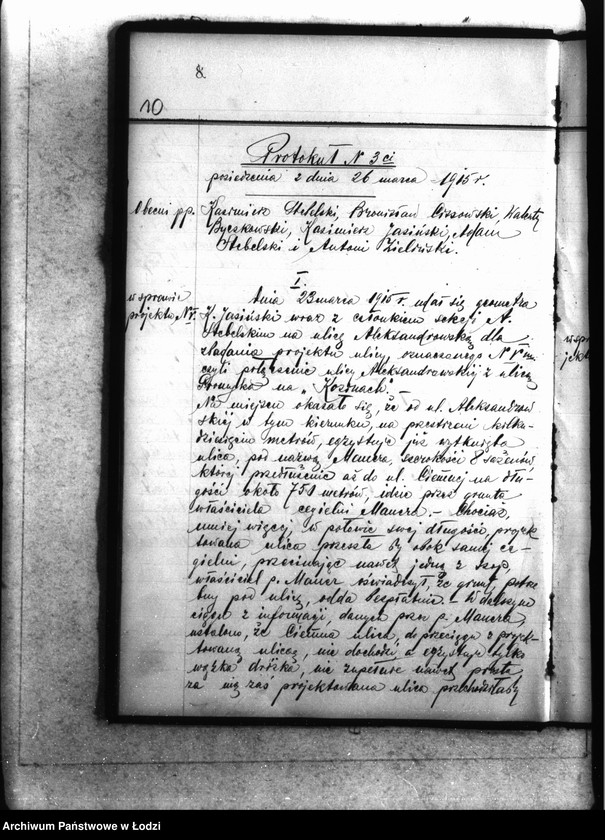 8.
10
Protokuł N 3 ci
posiedzenia z dnia 26 marca 1915 r.
Obecni pp. Kazimierz Stebelski, Bronisław Cissowski, Walenty
Byczkowski, Kazimierz Jasiński, Adam
Stebelski i Antoni Zieliński.
I.
w sprawie
projektu N V.
Dnia 23 marca 1915 r. udał się geometra
K. Jasiński wraz z członkiem sekcji A.
Stebelskim na ulicę Aleksandrowską dla
zbadania projektu ulicy, oznaczonego N V
czyli połączenie ulicy Aleksandrowskiej z ulicą
na „Kozinach".-
Na miejscu okazało się, że od ul. Aleksandrow
skiej w tym kierunku, na przestrzeni kilku-
dziesięciu metrów, egzystuje już wytknięta
ulica, pod nazwą Manera, szerokości 8 sążeniów
której przedłużenie aż do ul. Ciemnej na dłu-
gość około 751 metrów, idzie przez grunta
właściciela cegielni Manera.- Chociaż,
mniej więcej, w połowie swej długości, projek
towana ulica przeszła by obok samej ce-
gielni, przecinając nawet jedną z szop,
właściciel p. Maner oświadczył, że grunt, potrze
bny pod ulicę, odda bezpłatnie.- W dalszym
ciągu z informacji, danych przez p. Manera,
ustalono, że Ciemna ulica, do przecięcia z projek-
towaną ulicą, nie dochodzi a egzystuje tylko
wązka dróżka, nie zupełnie nawet prosta,
za nią zaś projektowana ulica przechodziłaby
w sp
jekt
Archiwum Państwowe w Łodzi